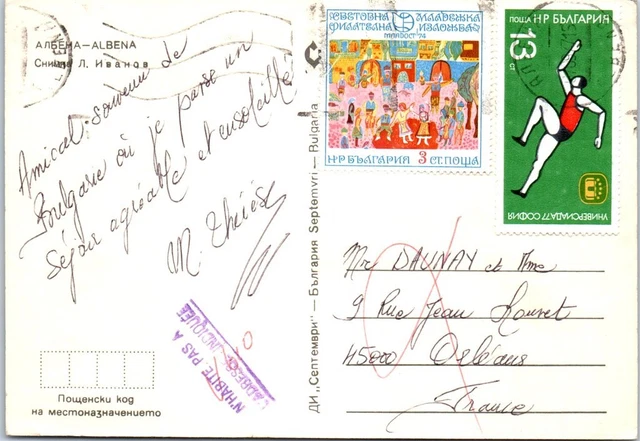 АЛБЕМА – ALBENA
Снимка Л. Иванов
Amical souvenir de
Bulgarie où je passe un
séjour agréable et ensoleillé
M.
N'HABITE PAS À
L'ADRESSE INDIQUÉE
Пощенски код
на местоназначението
ДИ „Септември" — България Septemvri — Bulgaria
СВЕТОВНА МЛАДЕЖКА
ФИЛАТЕЛНА ИЗЛОЖБА
МЛАДОСТ '74
НР БЪЛГАРИЯ 3 СТ. ПОЩА
ПОЩА НР БЪЛГАРИЯ
13 СТ
УНИВЕРСИАДА 77 СОФИЯ
Mr DAUNAY et Mme
9 Rue Jean
45000 Orléans
France